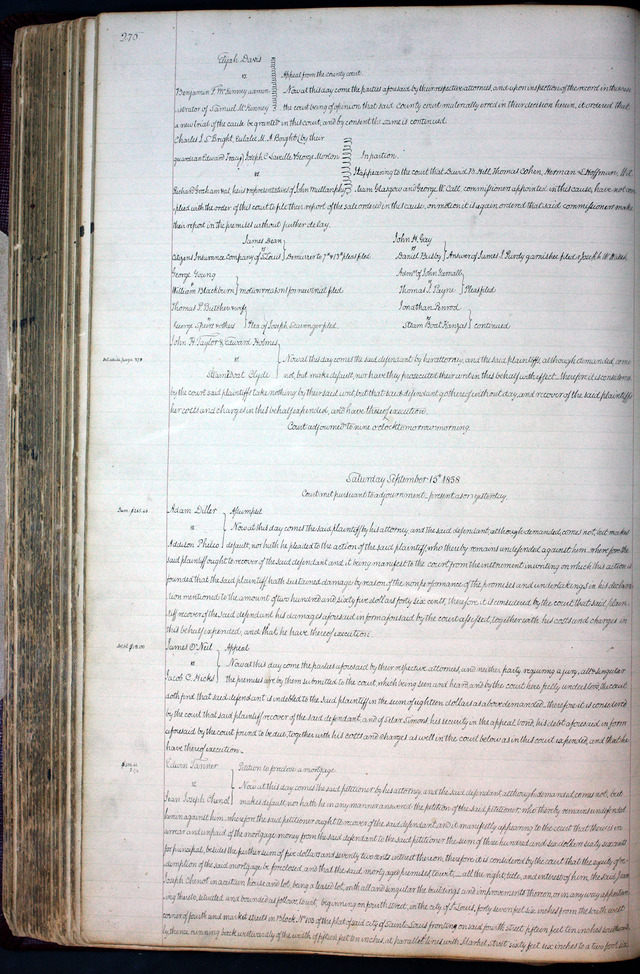 275
Elijah Davis
vs Appeal from the county court
Benjamin F. McKinney admin Now at this day come the parties aforesaid by their respective attornies, and upon inspection of the record in these
istrator of Samuel McKinney the court being of opinion that said County court materially erred in their decision herein, it ordered that
a new trial of the cause be granted in this court, and by consent the same is continued.
Charles J. S. Bright, Eulalie M. A. Bright by their
guardian Edward Tracy, Joseph C. Laveille George Morton In partion.
vs It appearing to the court that David B. Hill, Thomas Cohen, Herman L. Hoffman, Wil
Richard Graham & al, heirs & representatives of John Mullanphy liam Glasgow and George W. Call, commissioner appointed in this cause, have not com
plied with the order of this court to file their report of the sale ordered in this cause, on motion it is again ordered that said commissioner make
their report in the premises without further delay.
James Dean John H. Gay
vs vs
Citizens Insurance Company of St Louis Demurrer to 7th & 13th pleas filed Daniel Busby Answer of James S. Purdy garnishee filed & Joseph W. Walsh
George Young Admr. of John
vs vs
William Blackburn motion & reasons for new trial filed Thomas J. Payne Pleas filed
Thomas P. Butcher & wife Jonathan Penrod
vs vs
George Speirs & others Plea of Joseph filed Steam Boat Kanzas continued
John H. Taylor & Edward Holmes
Set aside page 279 vs Now at this day comes the said defendant by her attorney, and the said plaintiffs, although demanded, come
Steam Boat Clyde not, but make default, nor have they prosecuted their writ in this behalf with effect. Therefore it is considered
by the court said plaintiffs take nothing by their said writ, but that said defendant go thereof without day, and recover of the said plaintiffs
her costs and charges in this behalf expended, and have thereof execution.
Court adjourned to nine o'clock tomorrow morning.
Saturday September 15th 1838
Court met pursuant to adjournment present as on yesterday.
Adam Diller Assumpsit
Dam. $265.46 vs Now at this day comes the said plaintiff by his attorney, and the said defendant, although demanded, comes not, but makes
Addison Philio default, nor hath he pleaded to the action of the said plaintiff, who thereby remains undefended against him, wherefore the
said plaintiff ought to recover of the said defendant, and it being manifest to the court from the instrument in writing on which this action is
founded that the said plaintiff hath sustained damage by reason of the nonperformance of the promises and undertakings in his declara
tion mentioned to the amount of two hundred and sixty five dollars forty six cents, therefore it is considered by the court that said plain
tiff recover of the said defendant his damages aforesaid in form aforesaid by the court assessed, together with his costs and charges in
this behalf expended, and that he have thereof execution.
James O'Neil Appeal
Debt $18.00 vs Now at this day come the parties aforesaid by their respective attornies, and neither party requiring a jury, all & singular
Jacob C. Hicks the premises are by them submitted to the court, which being seen and heard, and by the court here fully understood, the court
doth find that said defendant is indebted to the said plaintiff in the sum of eighteen dollars as above demanded. therefore it is considered
by the court that said plaintiff recover of the said defendant, and of Silar Simons his security in the appeal bond, his debt aforesaid in form
aforesaid by the court found to be due, together with his costs and charges as well in the court below as in this court expended, and that he
have thereof execution.
Edwin Tanner Petition to foreclose a mortgage
vs Now at this day comes the said petitioner by his attorney, and the said defendant although demanded, comes not, but
Jean Joseph Chenot makes default, nor hath he in any manner answered the petition of the said petitioner who thereby remains undefended
herein against him, wherefore the said petitioner ought to recover of the said defendant, and it manifestly appearing to the court that there is in
arrear and unpaid of the mortgage money from the said defendant to the said petitioner the sum of three hundred and six dollars sixty six cents
for principal, besides the further sum of five dollars and seventy two cents interest thereon, therefore it is considered by the court that the equity of re
demption of the said mortgage be foreclosed, and that the said mortgaged premises, towit, all the right, title, and interest of him, the said Jean
Joseph Chenot in a certain house and lot, being a leased lot, with all and singular the buildings and improvements thereon, or in any way appertain
ing thereto, situated and bounded as follows, to wit, beginning on fourth street, in the city of St. Louis, forty seven feet six inches from the south west
corner of fourth and market streets in Block No. 103 of the plat of said city of Saint Louis fronting on said fourth street fifteen feet ten inches southward
ly, thence running back westwardly of the width of fifteen feet ten inches, at parallel lines with Market Street sixty feet six inches to a two foot six